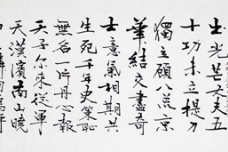 出光芒丈夫五
十功未立提刀
獨立顧八荒京
華結交盡奇
士意氣相期共
生死千年史策恥
無名一片丹心報
天子尔来從軍
天漢濱南山曉